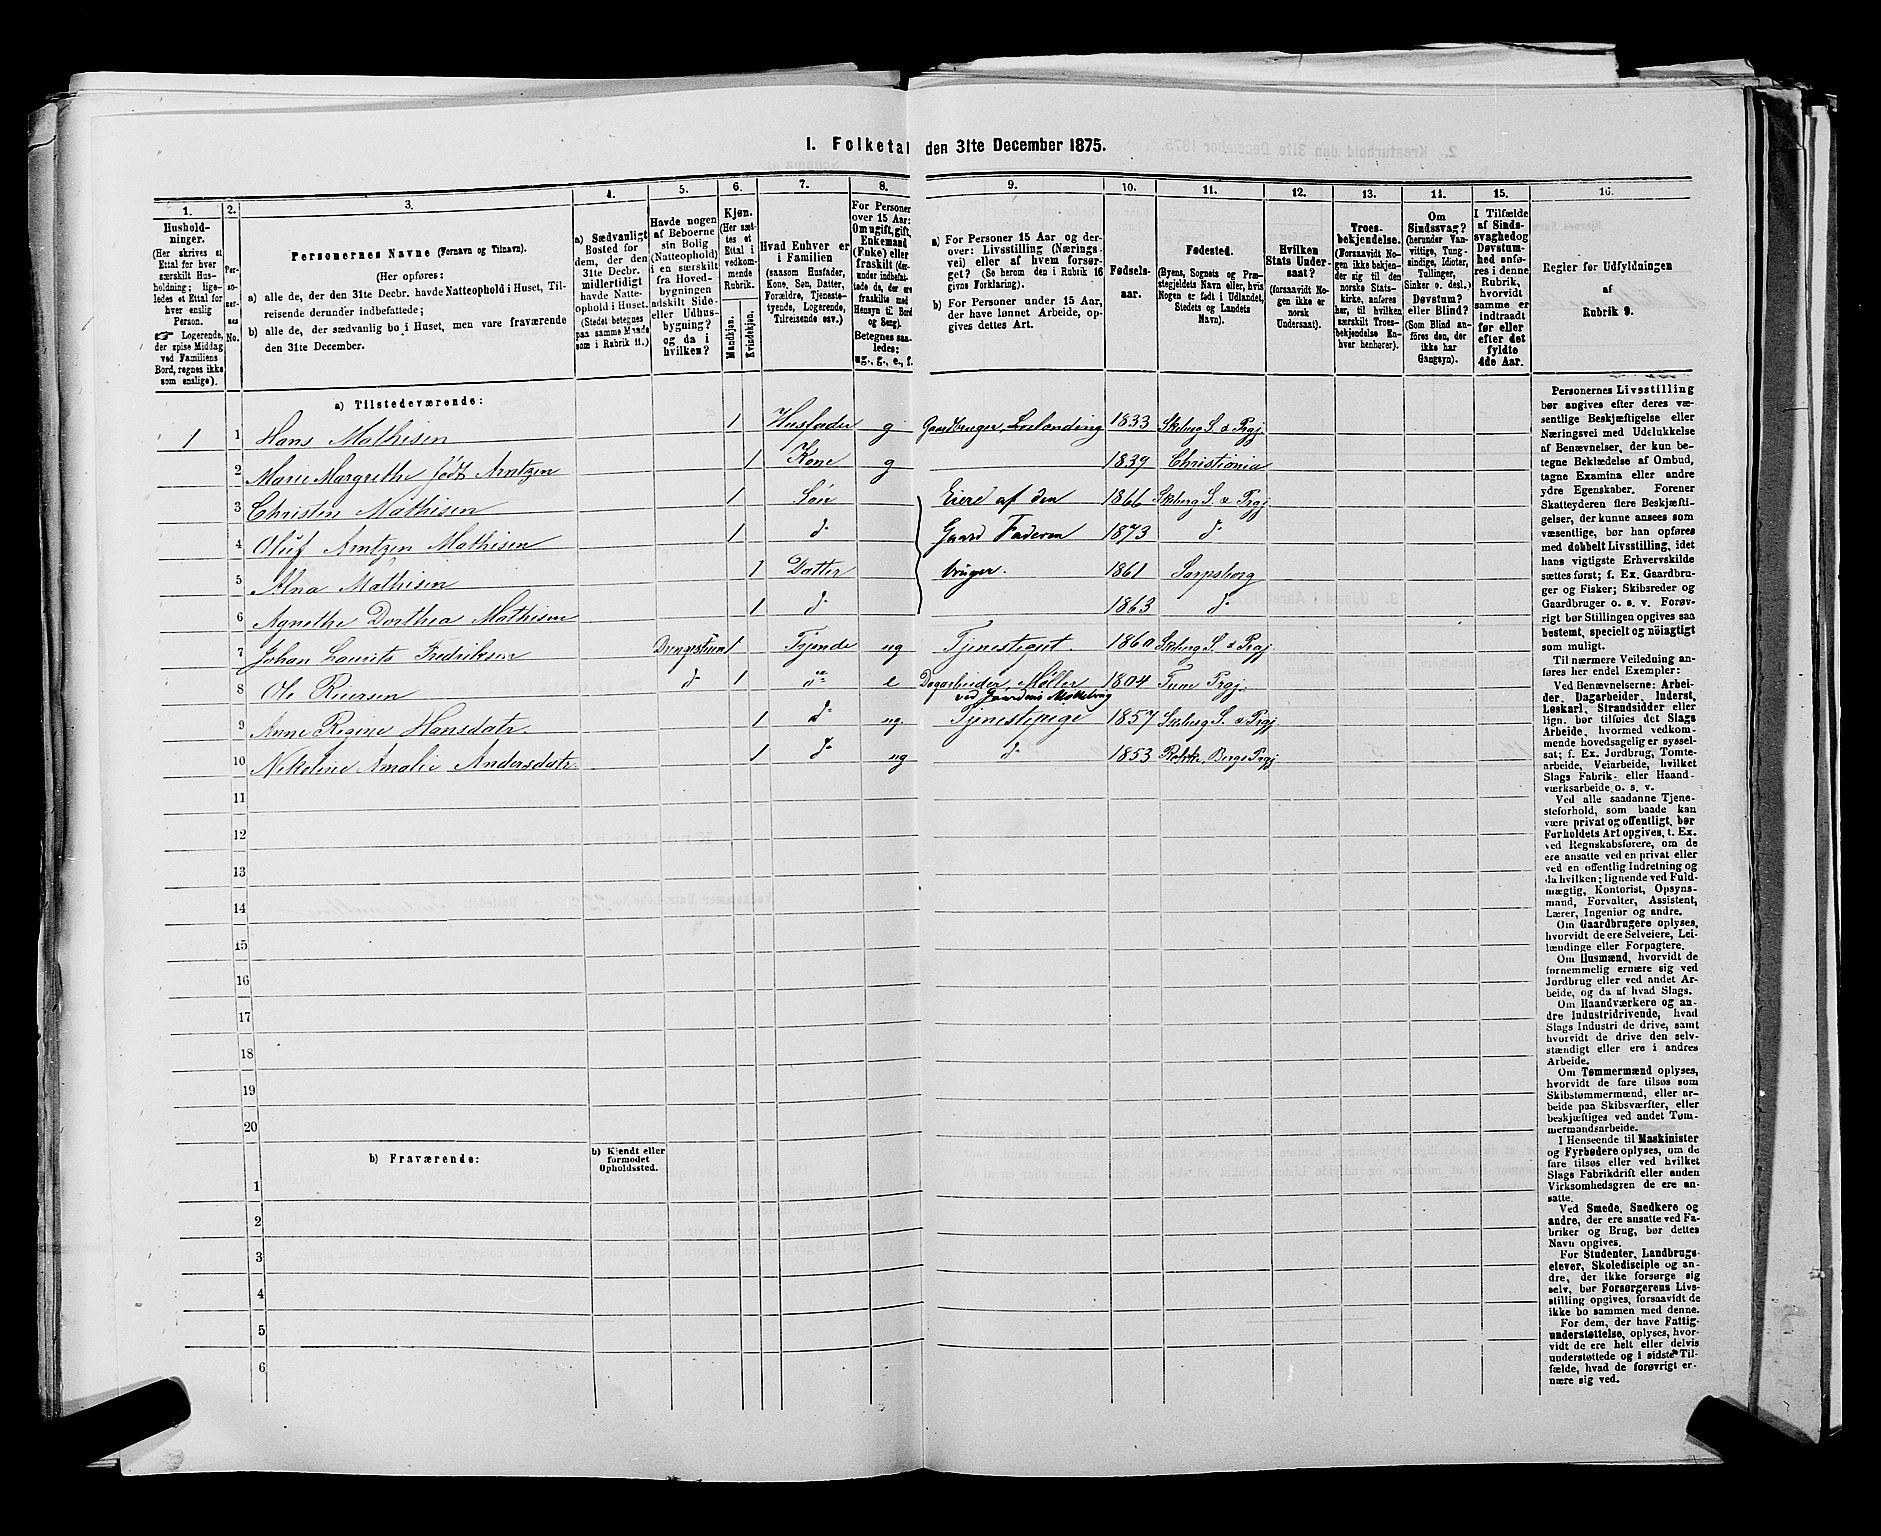 I. Folketal den 31te December 1875.
1.
2.
3.
4.
5.
6.
7.
8.
9.
10.
11.
12.
13.
14.
15.
16.
Hushold-
ninger.
(Her skrives et
Ettal for hver
særskilt Hus-
holdning; lige-
ledes et Ettal for
hver enslig
Person.
☞ Logerende,
der spise Middag
ved Familiens
Bord, regnes ikke
som enslige).
Per-
so-
ner-
nes
No.
Personernes Navne (Fornavn og Tilnavn).
(Her opføres:
a) alle de, der den 31te Decbr. havde Natteophold i Huset, Til-
reisende derunder indbefattede;
b) alle de, der sædvanlig bo i Huset, men vare fraværende
den 31te December.
a) Sædvanligt
Bosted for
dem, der den
31te Decbr.
midlertidigt
havde Natte-
ophold i Huset.
(Stedet betegnes
paa samme Maade
som i Rubrik 11.)
Havde nogen
af Beboerne
sin Bolig
(Natteophold)
i en særskilt
fra Hoved-
bygningen
adskilt Side-
eller Udhus-
bygning?
og da i
hvilken?
Kjøn.
(Her sæt-
tes et
Ettal i
vedkom-
mende
Rubrik.
Mandkjøn.
Kvindekjøn.
Hvad Enhver er
i Familien
(saasom Husfader,
Kone, Søn, Datter,
Forældre, Tjeneste-
tyende, Logerende,
Tilreisende osv.)
For Personer
over 15 Aar:
Om ugift, gift,
Enkemand
(Enke) eller
fraskilt (der-
under indbefat-
tede de, der ere
fraskilte med
Hensyn til Bord
og Seng).
Betegnes saa-
ledes:
ug., g., e., f.
a) For Personer 15 Aar og der-
over: Livsstilling (Nærings-
vei) eller af hvem forsør-
get? (Se herom den i Rubrik 16
givne Forklaring).
b) For Personer under 15 Aar,
der have lønnet Arbeide, op-
gives dettes Art.
Fødsels-
aar.
Fødested.
(Byens, Sognets og Præ-
stegjeldets Navn eller, hvis
Nogen er født i Udlandet,
Stedets og Landets
Navn).
Hvilken
Stats Under-
saat?
(forsaavidt No-
gen ikke er
norsk
Undersaat).
Troes-
bekjendelse.
(Forsaavidt No-
gen ikke bekjen-
der sig til den
norske Stats-
kirke, anføres
her, til hvilken
særskilt Troes-
bekjendelse En-
hver henhører).
Om
Sindssvag?
(herunder Van-
vittige, Tung-
sindige, Idioter,
Tullinger,
Sinker o. desl.)
Døvstum?
eller Blind?
(Som Blind an-
føres den, der
ikke har
Gangsyn).
I Tilfælde
af Sinds-
svaghed og
Døvstum-
hed anfø-
res i denne
Rubrik,
hvorvidt
samme er
indtraadt
før eller
efter det
fyldte
4de Aar.
Regler for Udfyldningen
af
Rubrik 9.
a) Tilstedeværende:
1 1 Hans Mathisen 1 Husfader g Gaardbruger, 1833 Skeberg S. & Prgj.
2 Marie Margrethe født Arntzen 1 Kone g 1839 Christiania
3 Christen Mathisen 1 Søn Eiere af den 1866 Skeberg S. & Prgj
4 Oluf Arntzen Mathisen 1 d° Gaard Faderen 1873 d°
5 Alna Mathisen 1 Datter bruger. 1861 Sarpsborg
6 Agnethe Dorthea Mathisen 1 d° 1863 d°
7 Johan Laurits Fredriksen 1 Tyende ug Tjenestegut. 1860 Skeberg S. & Prgj.
8 Ole Riersen d° 1 d° e Dagarbeider, Møller 1804 Tune Prgj.
ved Gaardens Møllebrug
9 Anne Regine Hansdatr. 1 d° ug Tjenestepige 1857 Skeberg S. & Prgj
10 Nikoline Amalie Andersdatr. 1 d° ug d° 1853 Bergs Prgj
11
12
13
14
15
16
17
18
19
20
b) Fraværende:
b) Kjendt eller
formodet
Opholdssted.
1
2
3
4
5
6
Personernes Livsstilling
bør angives efter deres væ-
sentlige Beskjæftigelse eller
Næringsvei med Udelukkelse
af Benævnelser, der kun be-
tegne Beklædelse af Ombud,
tagne Examina eller andre
ydre Egenskaber. Forener
Skatteyderen flere Beskjæfti-
gelser, der kunne ansees som
væsentlige, bør han opføres
med dobbelt Livsstilling, idet
hans vigtigste Erhvervskilde
sættes først; f. Ex. Gaardbru-
ger og Fisker; Skibsreder og
Gaardbruger o. s. v. Forøv-
rigt bør Stillingen opgives saa
bestemt, specielt og nöiagtigt
som muligt.
Til nærmere Veiledning an-
føres her endel Exempler:
Ved Benævnelserne: Arbei-
der, Dagarbeider, Inderst,
Løskarl, Strandsidder eller
lign. bør tilføies det Slags
Arbeide, hvormed vedkom-
mende hovedsagelig er syssel-
sat; f. Ex. Jordbrug, Tomte-
arbeide, Veiarbeide, hvilket
Slags Fabrik- eller Haand-
værksarbeide o. s. v.
Ved alle saadanne Tjene-
steforhold, som baade kan
være privat og offentligt, bør
Forholdets Art opgives, t. Ex.
ved Regnskabsførere, om de
ere ansatte ved en privat eller
ved en offentlig Indretning og
da hvilken; lignende ved Fuld-
mægtig, Kontorist, Opsyns-
mand, Forvalter, Assistent,
Lærer, Ingeniør og andre.
Om Gaardbrugere oplyses,
hvorvidt de ere Selveiere, Lei-
lændinge eller Forpagtere.
Om Husmænd, hvorvidt de
fornemmelig ernære sig ved
Jordbrug eller ved andet Ar-
beide, og da af hvad Slags.
Om Haandværkere og an-
dre Industridrivende, hvad
Slags Industri de drive, samt
hvorvidt de drive den selv-
stændigt eller ere i andres
Arbeide.
Om Tømmermænd oplyses,
hvorvidt de fare tilsøs som
Skibstømmermænd, eller ar-
beide paa Skibsværfter, eller
beskjæftiges ved andet Tøm-
mermandsarbeide.
I Henseende til Maskinister
og Fyrbødere oplyses, om de
fare tilsøs eller ved hvilket
Slags Fabrikdrift eller anden
Virksomhedsgren de ere an-
satte.
Ved Smede, Snedkere og
andre, der ere ansatte ved Fa-
briker og Brug, bør dettes
Navn opgives.
For Studenter, Landbrugs-
elever, Skoledisciple og an-
dre, der ikke forsørge sig
selv, bør Forsørgerens Livs-
stilling opgives, forsaavidt de
ikke bo sammen med denne.
For dem, der have Fattig-
understøttelse, oplyses, hvor-
vidt de ere helt eller delvis
understøttede og i sidste Til-
fælde, hvad de forøvrigt er-
nære sig ved.